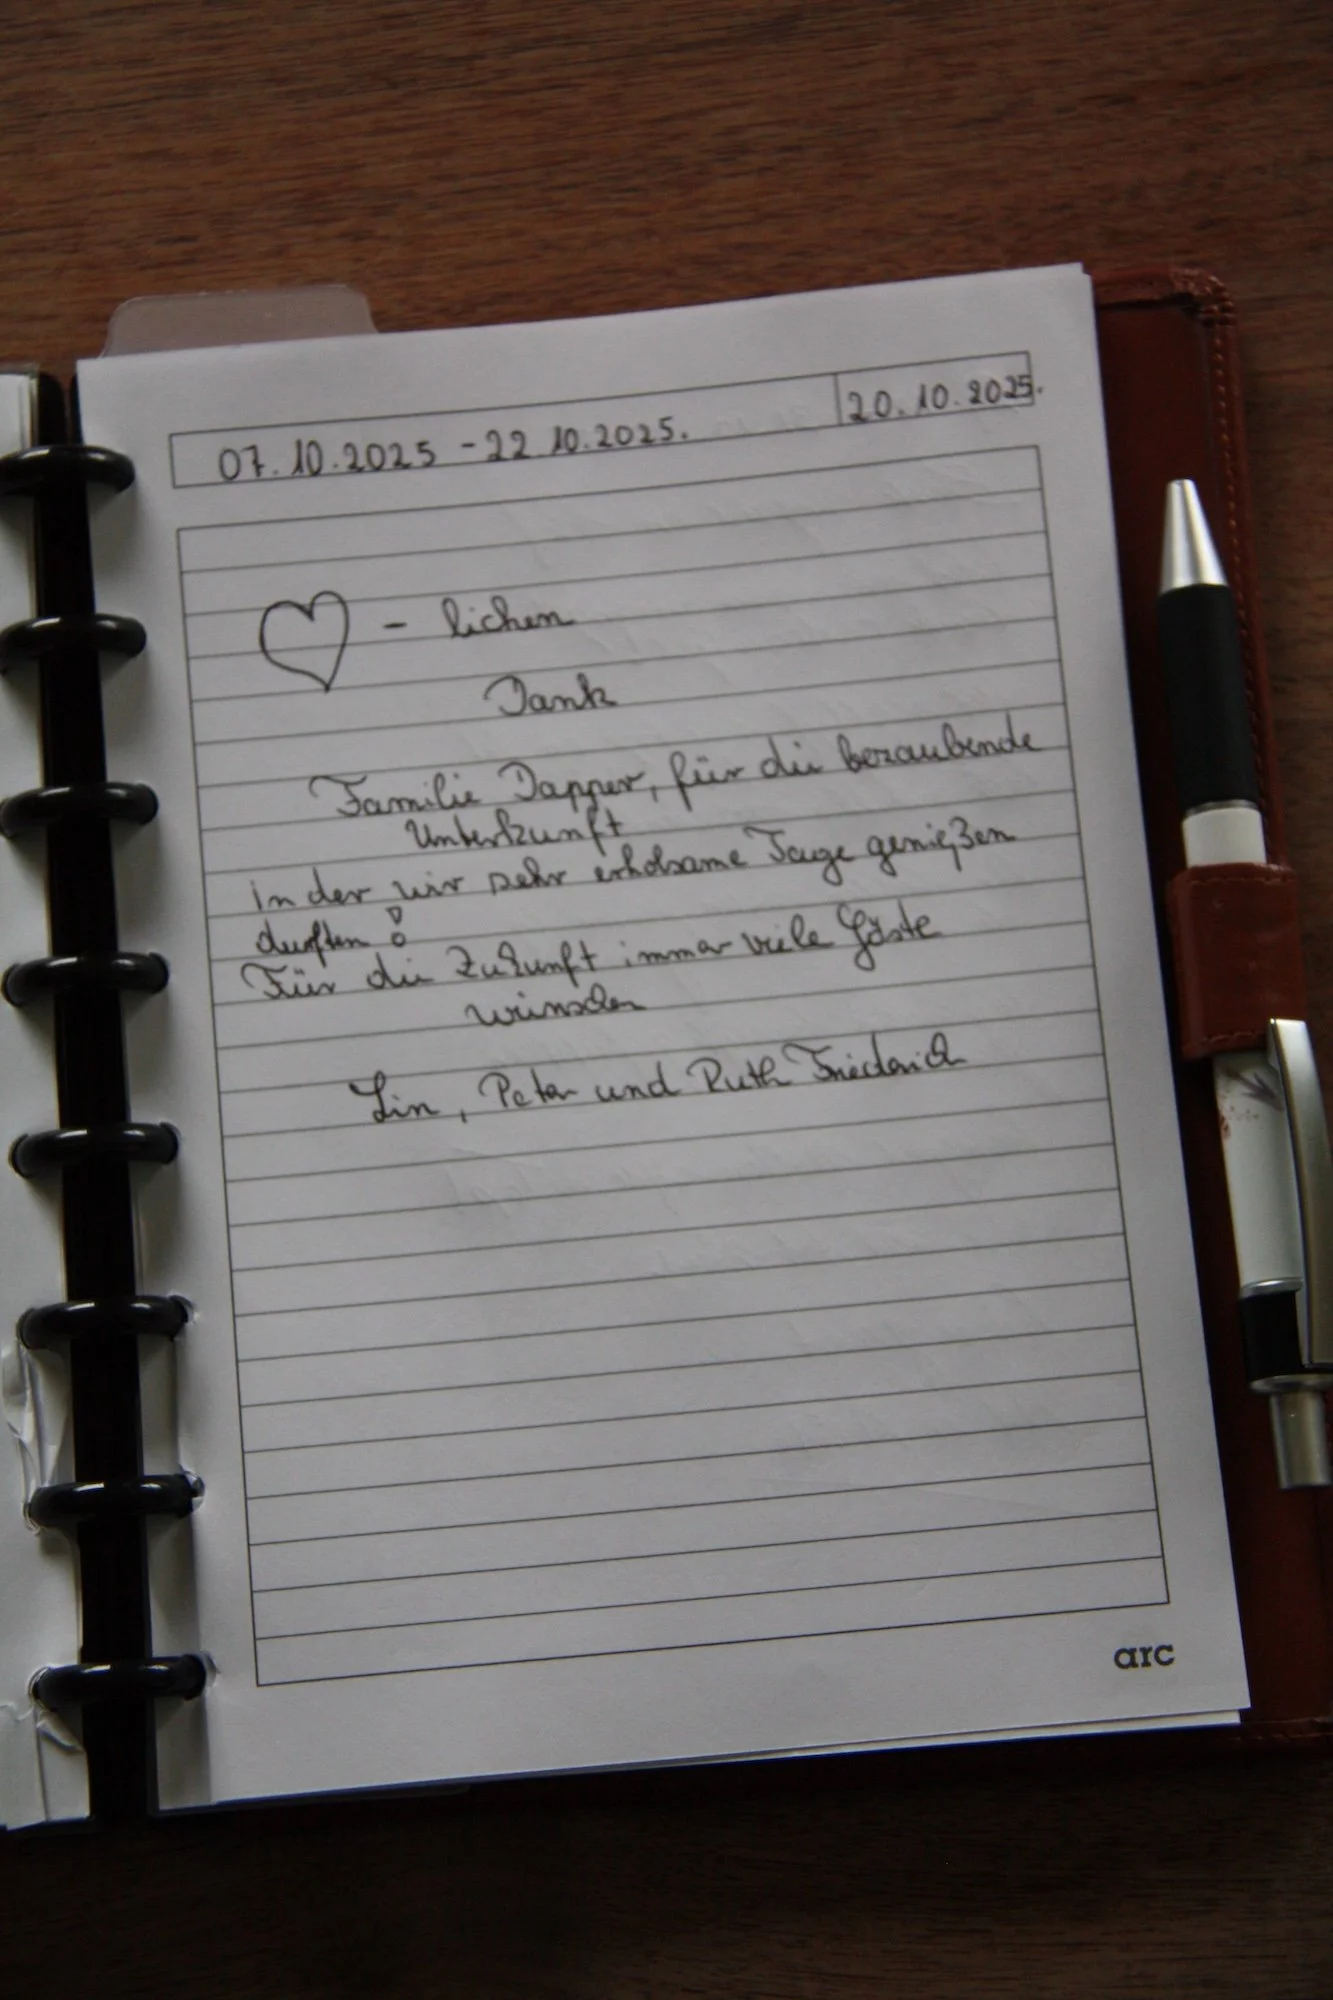 07.10.2025 - 22.10.2025.
20.10.2025.
- lichen
Dank
Familie Dapper, für die bezaubernde
Unterkunft
in der wir sehr erholsame Tage genießen
durften!
Für die Zukunft immer viele Gäste
wünschen
Lin, Peter und Ruth Friederich
arc